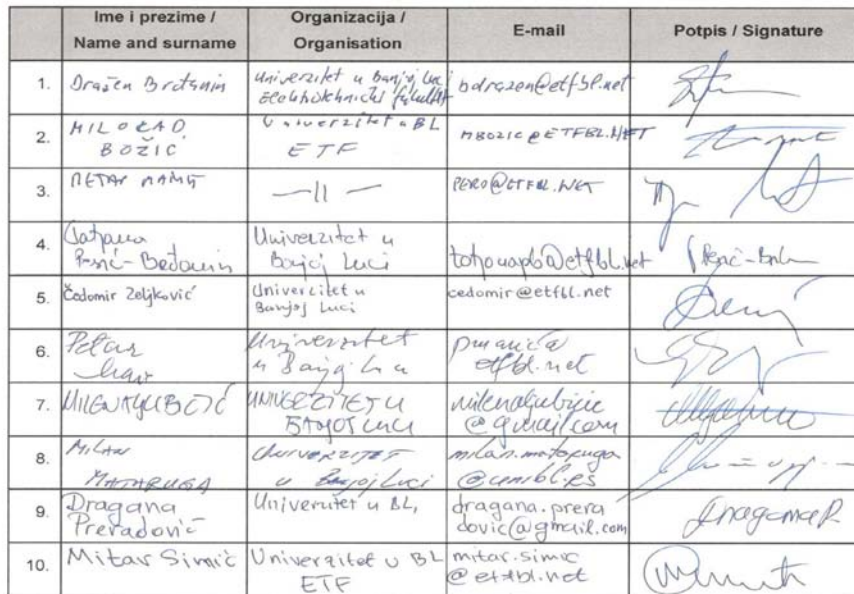 Ime i prezime / Name and surname
Organizacija / Organisation
E-mail
Potpis / Signature
1. Dražen Brđanin
Univerzitet u Banjoj Luci
Elektrotehnički fakultet
bdrazen@etfbl.net
2. MILORAD
BOŽIĆ
Univerzitet u BL
ETF
MBOZIC@ETFBL.NET
3. PETAR
—||—
PERO@ETFBL.NET
4. Tatjana
Univerzitet u
Banjoj Luci
5. Čedomir Zeljković
Univerzitet u
Banjoj Luci
cedomir@etfbl.net
6. Petar
Univerzitet
u Banjoj Luci
etfbl.net
7. MILENA LJUBIČIĆ
UNIVERZITET U
BANJOJ LUCI
@gmail.com
8. MILAN
MATARUGA
UNIVERZITET
u Banjoj Luci
milan.mataruga
@unibl.rs
9. Dragana
Preradović
Univerzitet u BL,
dragana.prera
dovic@gmail.com
Dragana P.
10. Mitar Simić
Univerzitet u BL
ETF
mitar.simic
@etfbl.net